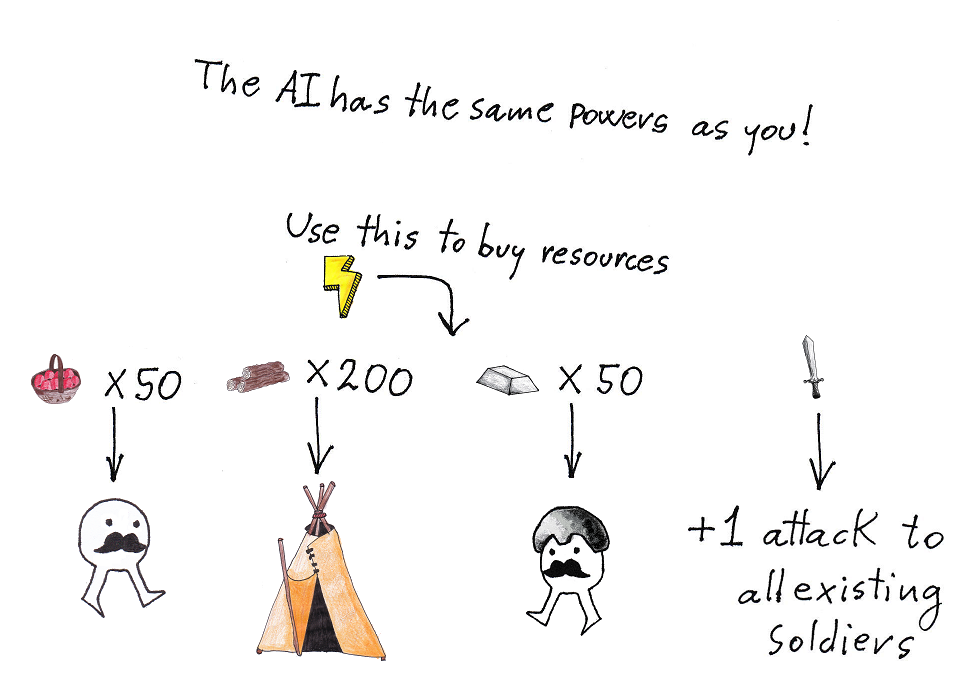 The AI has the same powers as you!
Use this to buy resources
x50
x200
x50
+1 attack to
all existing
soldiers